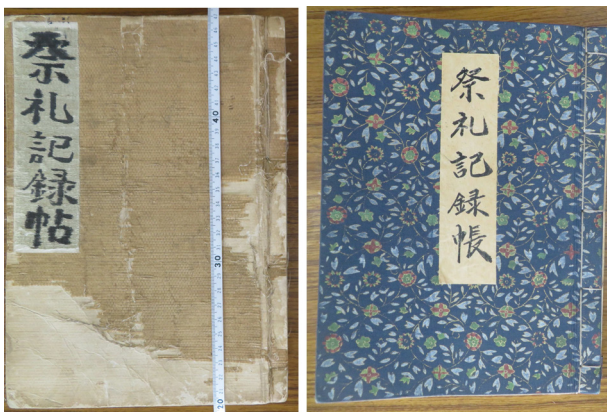 祭礼記録帖
40
30
20
祭礼記録帳